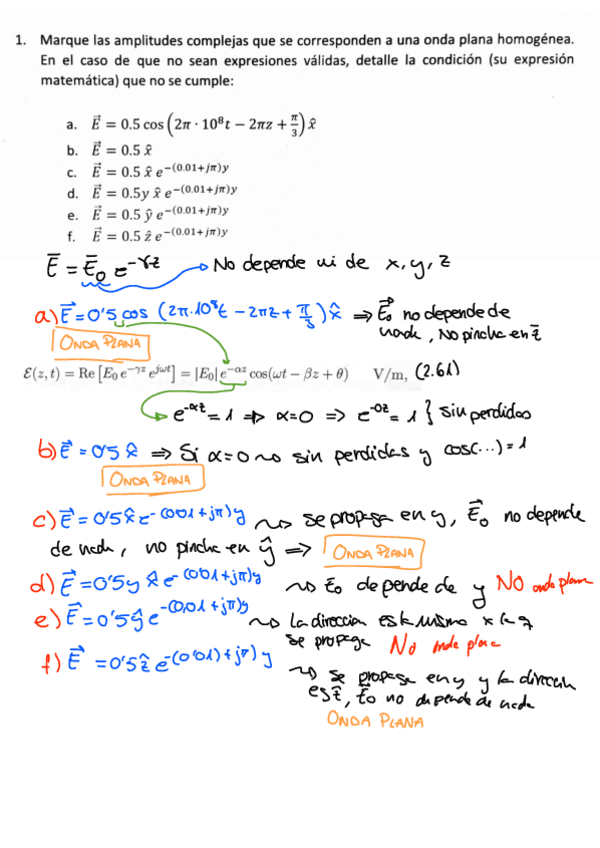 1. Marque las amplitudes complejas que se corresponden a una onda plana homogénea.
En el caso de que no sean expresiones válidas, detalle la condición (su expresión
matemática) que no se cumple:
a. E⃗ = 0.5 cos (2π · 10⁸t − 2πz + π/3) x̂
b. E⃗ = 0.5 x̂
c. E⃗ = 0.5 x̂ e^−(0.01+jπ)y
d. E⃗ = 0.5y x̂ e^−(0.01+jπ)y
e. E⃗ = 0.5 ŷ e^−(0.01+jπ)y
f. E⃗ = 0.5 ẑ e^−(0.01+jπ)y
E̅ = E̅₀ e^−γz → No depende ni de x, y, z
a) E⃗ = 0'5 cos (2π·10⁸t − 2πz + π/3) x̂ ⇒ E⃗₀ no depende de
nada, No pincha en z̅
ONDA PLANA
ℰ(z,t) = Re [E₀e^−γz e^jωt] = |E₀|e^−αz cos(ωt − βz + θ) V/m, (2.61)
e^−αz = 1 ⇒ α=0 ⇒ e^−0z = 1 } sin perdidas
b) E⃗ = 0'5 x̂ ⇒ Si α=0 ~> sin perdidas y cos(...) = 1
ONDA PLANA
c) E⃗ = 0'5 x̂ e^−(0'01+jπ)y ~> se propaga en y, E⃗₀ no depende
de nada, no pincha en ŷ ⇒ ONDA PLANA
d) E⃗ = 0'5y x̂ e^−(0'01+jπ)y ~> E₀ depende de y NO onda plana
e) E⃗ = 0'5 ŷ e^−(0,01+jπ)y ~> La direccion es la misma x la q
se propaga No onda plana
f) E⃗ = 0'5 ẑ e^−(0'01)+jπ)y ~> se propaga en y y la direccion
es z̅, E₀ no depende de nada
ONDA PLANA